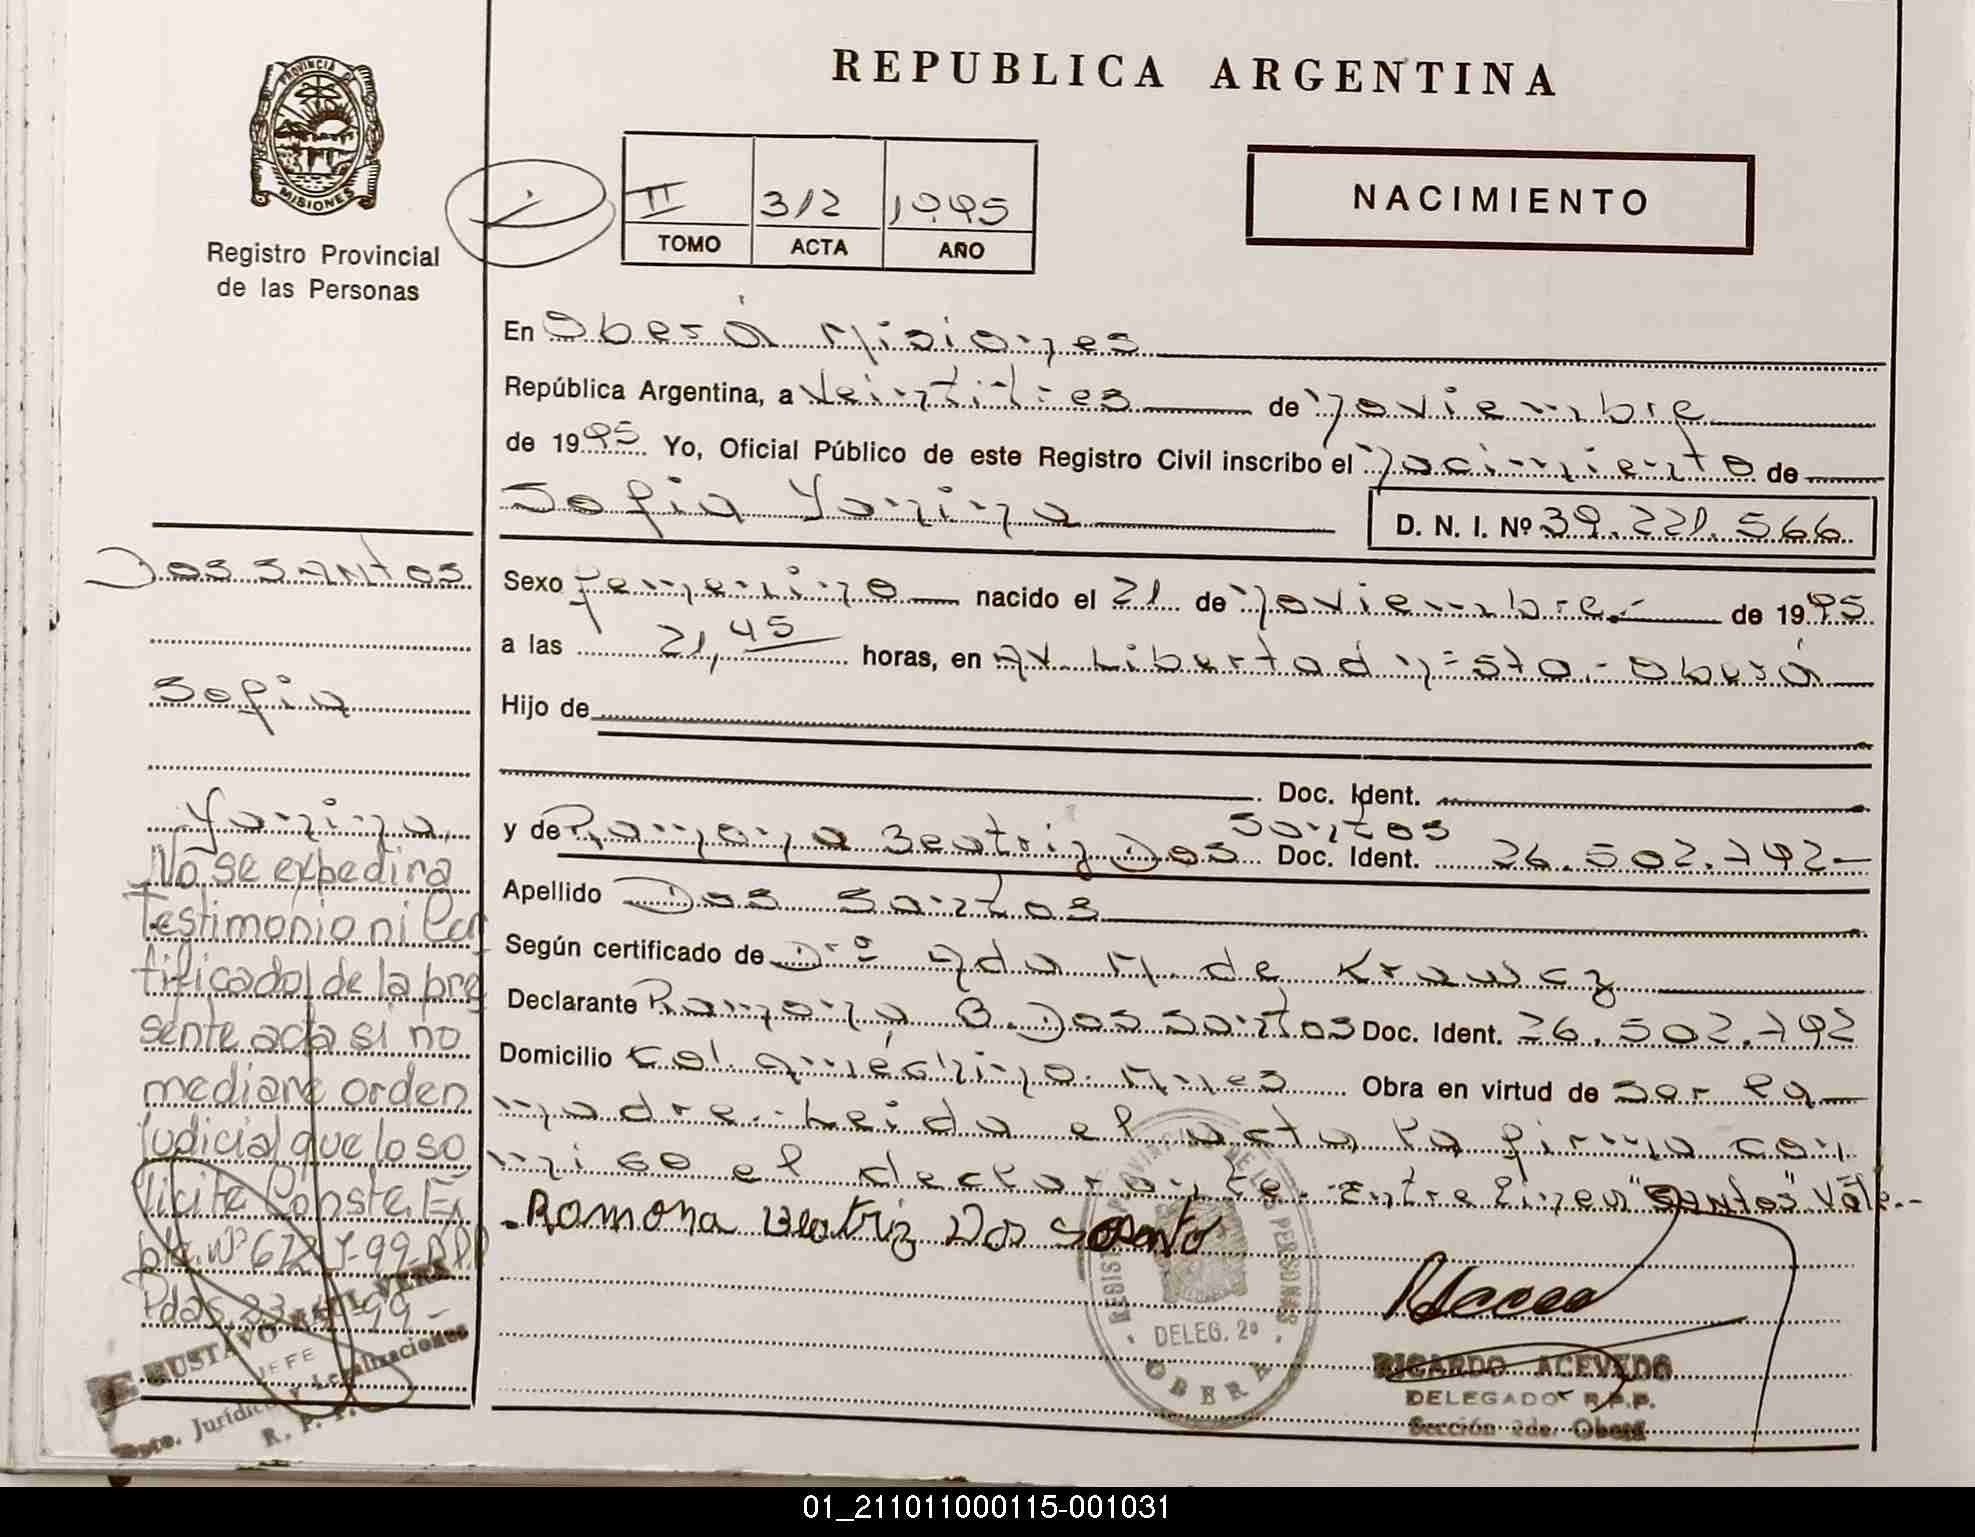 REPUBLICA ARGENTINA
PROVINCIA DE
MISIONES
Registro Provincial
de las Personas
II 312 1995
TOMO ACTA AÑO
NACIMIENTO
En Oberá Misiones
República Argentina, a Veintitres de noviembre
de 1995 Yo, Oficial Público de este Registro Civil inscribo el nacimiento de
Sofia Yanina
D. N. I. Nº 39.221.566
Sexo femenino nacido el 21 de noviembre.- de 1995
a las 21,45 horas, en Av. Libertad nº sto.- Oberá
Hijo de
Doc. Ident.
y de Ramona Beatriz Dos Santos Doc. Ident. 26.502.792-
Apellido Dos Santos
Según certificado de Drª Ada M. de Krawcz
Declarante Ramona B. Dos santos Doc. Ident. 26.502.792
Domicilio Col. Mnes Obra en virtud de ser la
madre.- Leida el acta la firma con
migo el declarante.- Entre lineas "Santos" Vale.-
Ramona Beatriz Dos Santo
Dos santos
Sofia
Yanina
No se expedira
Testimonio ni Cer
tificado de la pre
sente acta si no
mediane orden
judicial que lo so
licite Conste. Ex
pte. Nº 672 Y-99-RPP
Pdas, 23 99-
GUSTAVO RAUL VERA
JEFE
Dpto. Jurídico y Legalizaciones
R. P. P.
REGISTRO PROVINCIAL DE LAS PERSONAS
DELEG. 2ª
OBERA
RICARDO ACEVEDO
DELEGADO R.P.P.
Sección 2da. Oberá
01_211011000115-001031